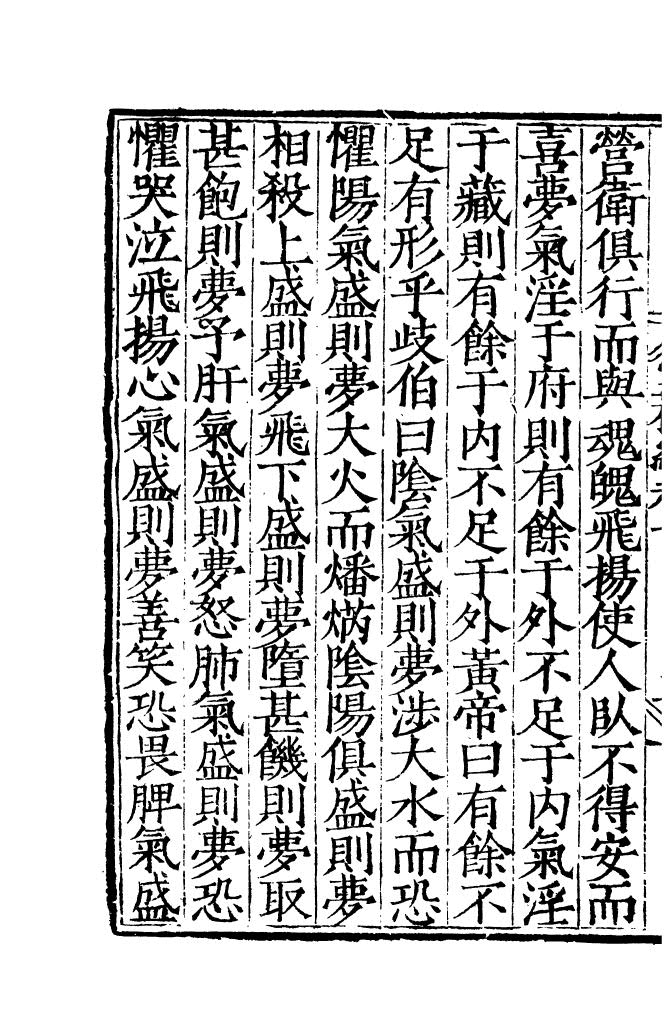 營衛俱行而與魂魄飛揚使人臥不得安而
喜夢氣淫于府則有餘于外不足于内氣淫
于藏則有餘于内不足于外黃帝曰有餘不
足有形乎歧伯曰隂氣盛則夢涉大水而恐
懼陽氣盛則夢大火而燔焫隂陽俱盛則夢
相殺上盛則夢飛下盛則夢墮甚饑則夢取
甚飽則夢予肝氣盛則夢怒肺氣盛則夢恐
懼哭泣飛揚心氣盛則夢善笑恐畏脾氣盛